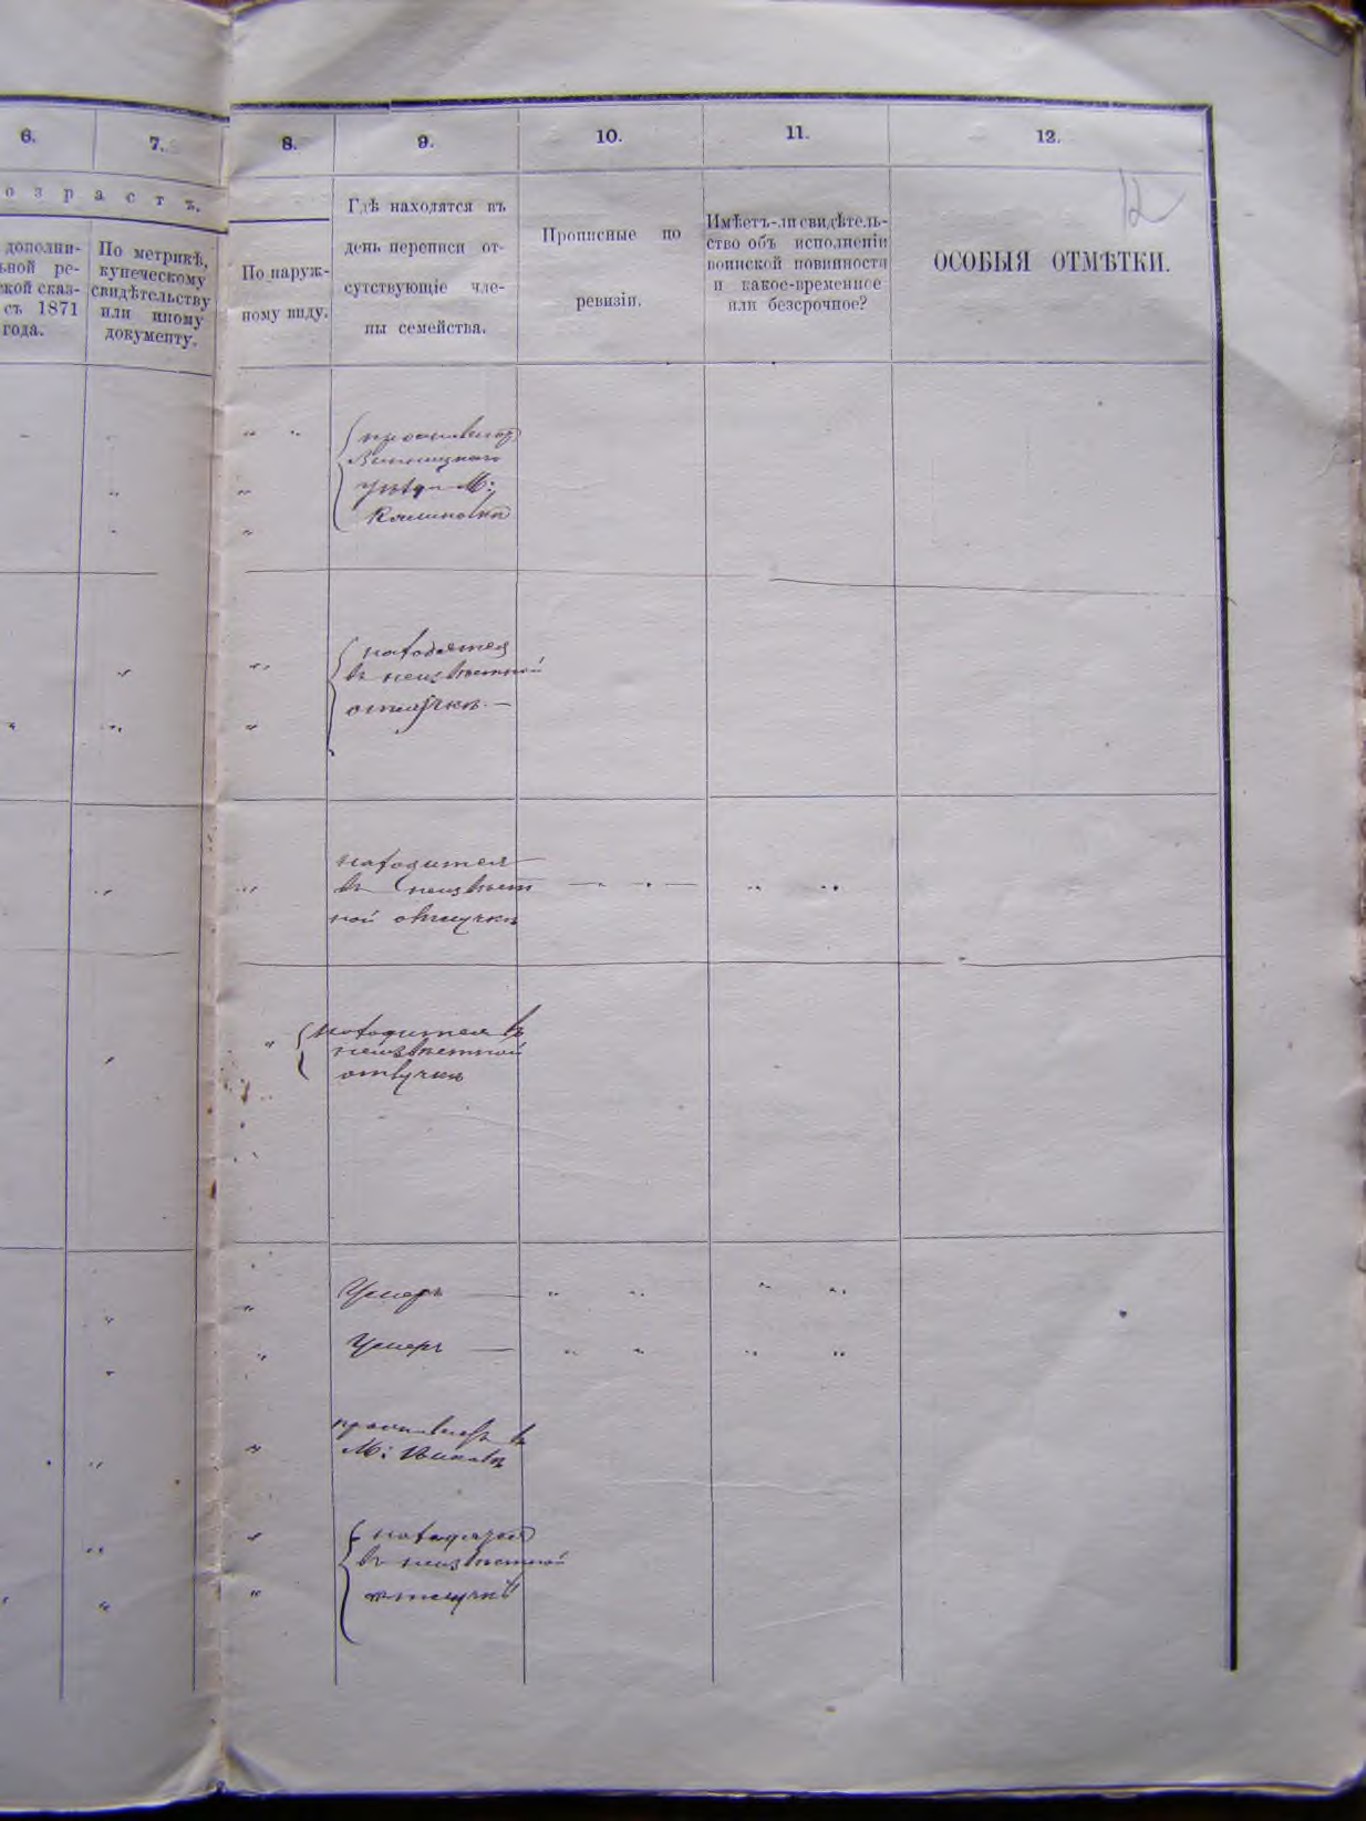 6.
7.
8.
9.
10.
11.
12.
12
озрастъ.
дополни-
ьной ре-
ской сказ-
съ 1871
года.
По метрикѣ,
купеческому
свидѣтельству
или иному
документу.
По наруж-
ному виду.
Гдѣ находятся въ
день переписи от-
сутствующіе чле-
ны семейства.
Прописные по
ревизіи.
Имѣетъ-ли свидѣтель-
ство объ исполненіи
воинской повинности
и какое-временное
или безсрочное?
ОСОБЫЯ ОТМѢТКИ.
проживаютъ
Винницкаго
уѣзда М:
Калиновкѣ
находятся
въ неизвѣстной
отлучкѣ —
находится
въ неизвѣст
ной отлучкѣ
находится въ
неизвѣстной
отлучкѣ
Умеръ —
Умеръ —
проживаетъ въ
М:
находятся
въ неизвѣстной
отлучкѣ